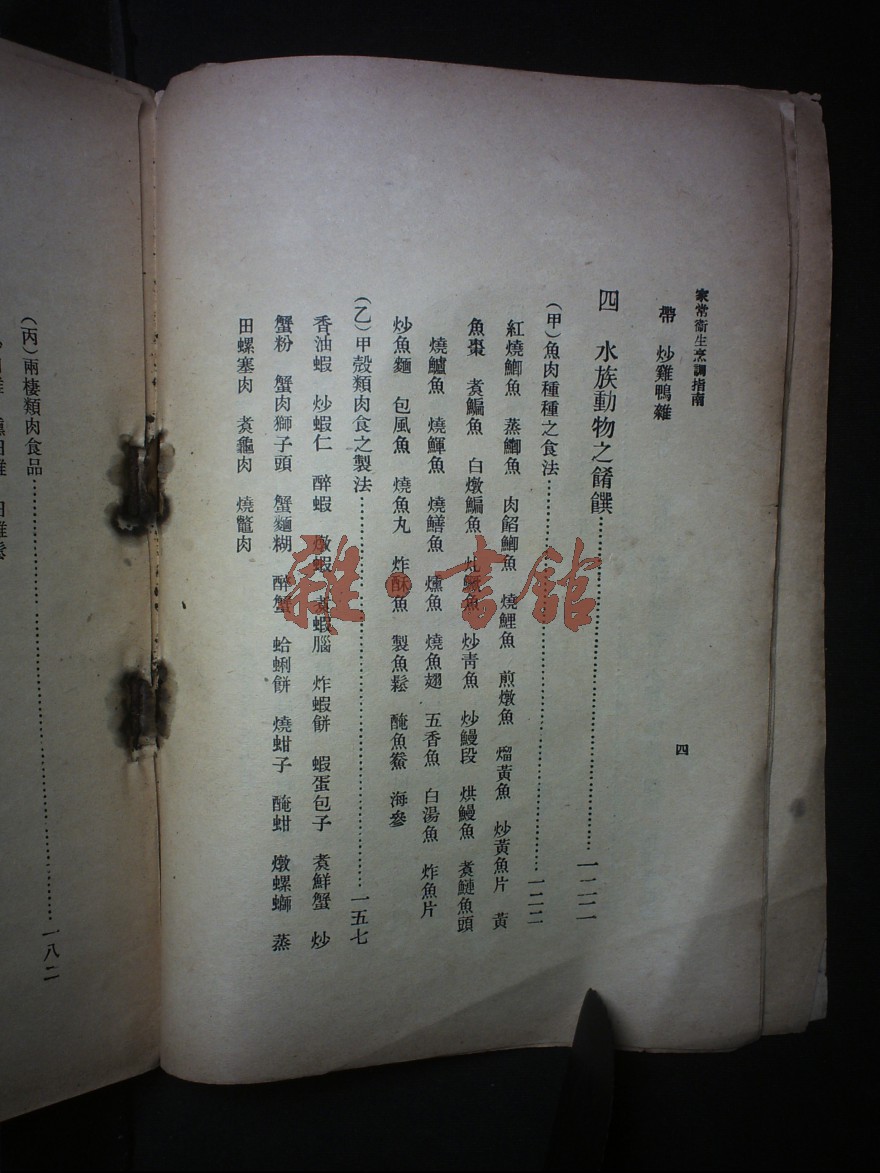 家常衞生烹調指南
帶　炒雞鴨雜
四　水族動物之餚饌……一二二
（甲）魚肉種種之食法……一二二
紅燒鯽魚　蒸鯽魚　肉餡鯽魚　燒鯉魚　煎燉魚　熘黃魚　炒黃魚片　黃
魚棗　煑鯿魚　白燉鯿魚　鱖魚　炒青魚　炒鰻段　烘鰻魚　煑鰱魚頭
燒鱸魚　燒鯶魚　燒鱔魚　燻魚　燒魚翅　五香魚　白湯魚　炸魚片
炒魚麵　包風魚　燒魚丸　炸酥魚　製魚鬆　醃魚鮝　海參
（乙）甲殼類肉食之製法……一五七
香油蝦　炒蝦仁　醉蝦　燉蝦　煑蝦腦　炸蝦餅　蝦蛋包子　煑鮮蟹　炒
蟹粉　蟹肉獅子頭　蟹麵糊　醉蟹　蛤蜊餅　燒蚶子　醃蚶　燉螺螄　蒸
田螺塞肉　煑龜肉　燒鼈肉
四
（丙）兩棲類肉食品……一八二
雜·書館